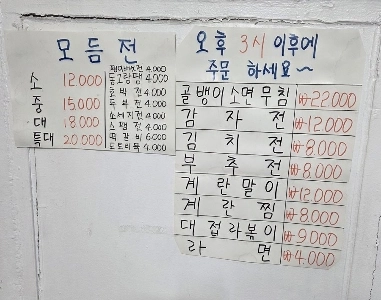 모듬전
소 12.000
중 15.000
대 18.000
특대 20.000
4.000
동그랑땡 4.000
호박전 4.000
두부전 4.000
소세지전 4.000
스팸전 4.000
떡갈비 6.000
도토리묵 4.000
오후 3시 이후에
주문 하세요~
골뱅이소면무침 ₩22000
감자전 ₩12.000
김치전 ₩8.000
부추전 ₩8.000
계란말이 ₩12.000
계란찜 ₩8.000
대접라볶이 ₩9.000
라면 ₩4.000